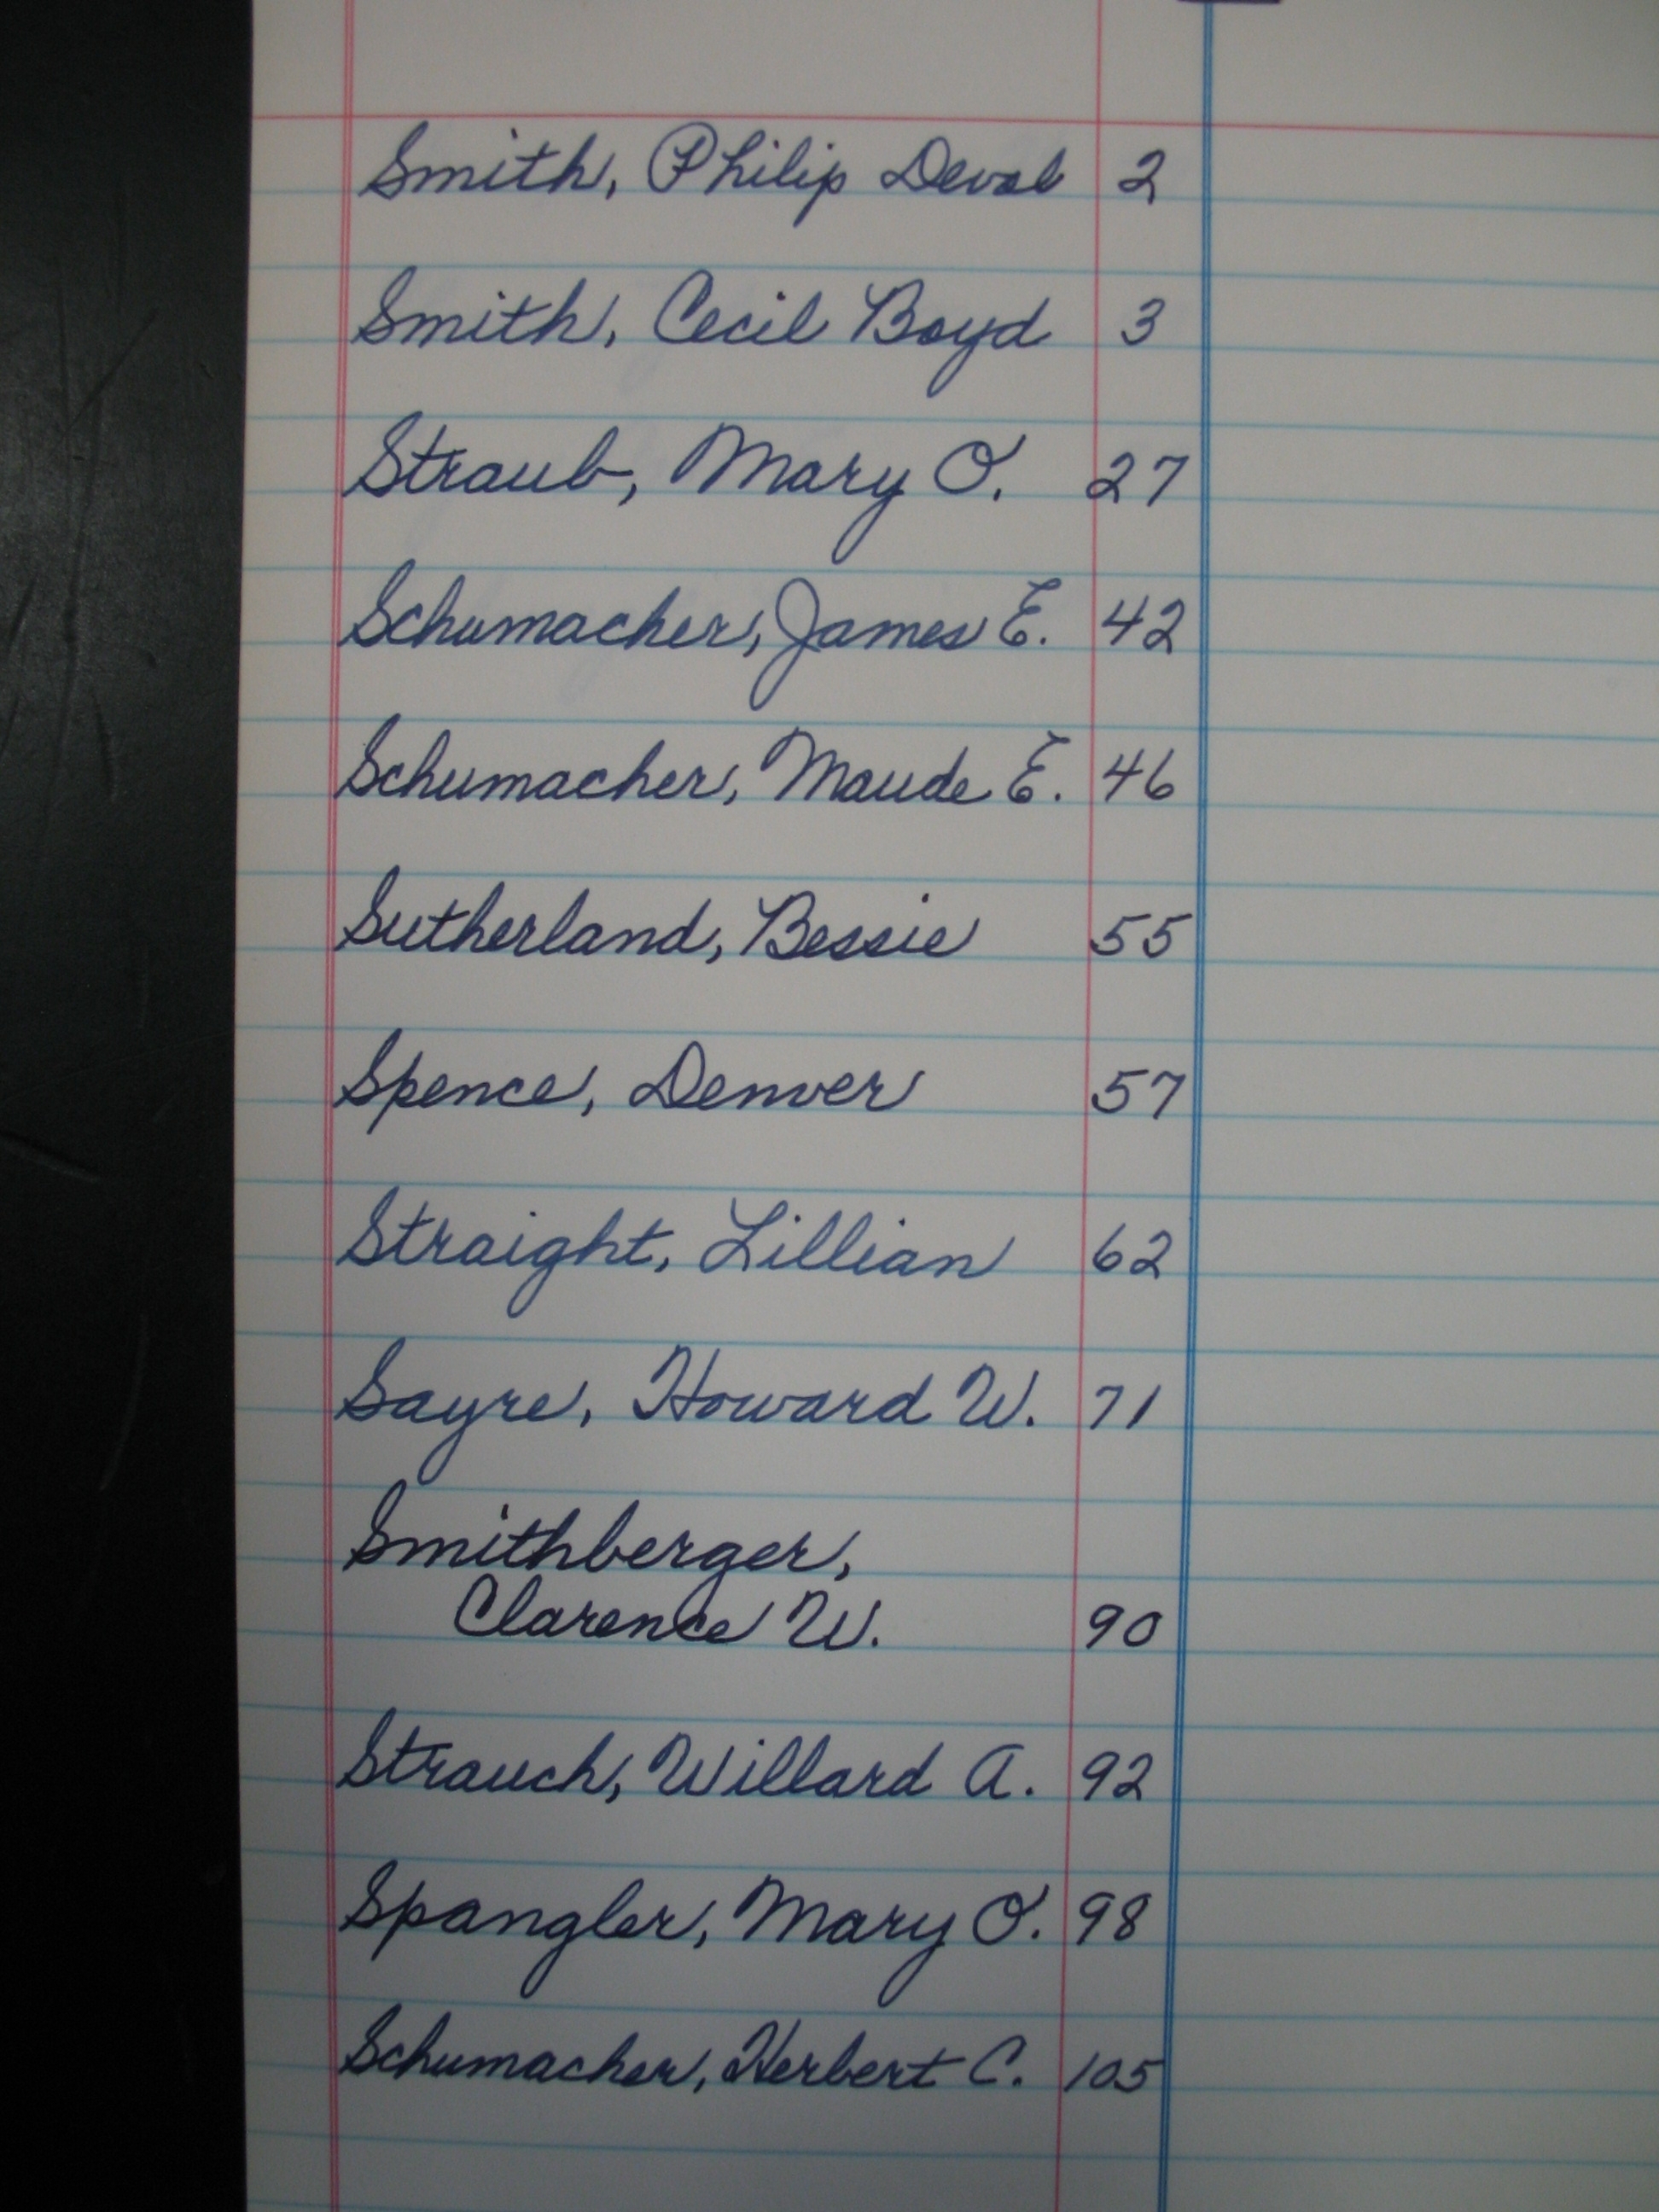 Smith, Philip Devol 2
Smith, Cecil Boyd 3
Straub, Mary O. 27
Schumacher, James E. 42
Schumacher, Maude E. 46
Sutherland, Bessie 55
Spence, Denver 57
Straight, Lillian 62
Sayre, Howard W. 71
Smithberger,
Clarence W. 90
Strauch, Willard A. 92
Spangler, Mary O. 98
Schumacher, Herbert C. 105